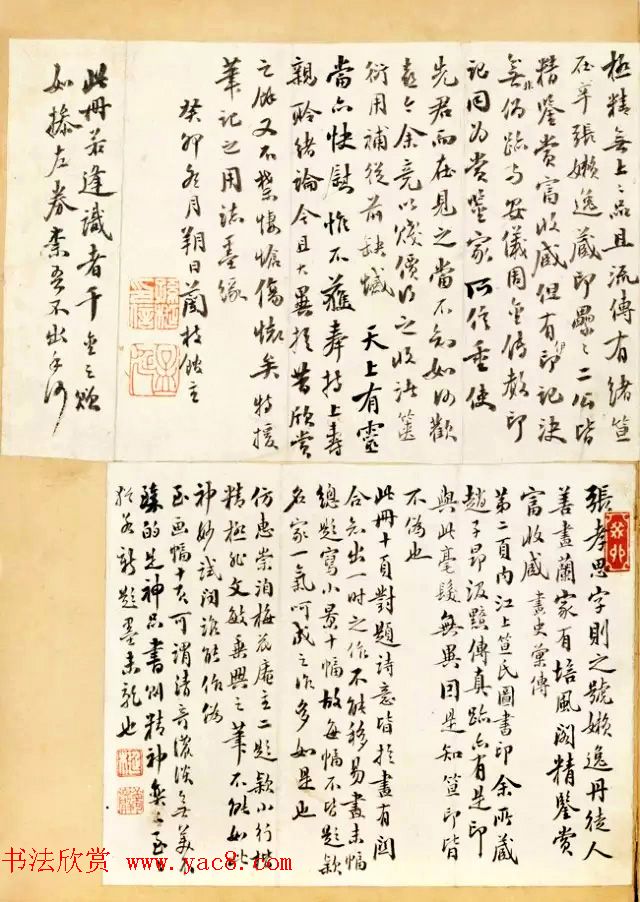 極精無上上品且流傳有緒笪
在辛張嬾逸藏印纍纍二公皆
精鑒賞富收藏但有印記決
無偽跡与安儀周金傳教印
記同為賞鑒家所信重使
先君而在見之當不知如何歡
喜今余竟以賤價得之收諸篋
衍用補從前缺憾天上有靈
當亦快慰惟不獲奉持上壽
親聆緒論今且大異於昔欣賞
之餘又不禁悽愴傷懷矣特援
筆記之用誌墨緣
癸卯冬月朔日蘭枝館主
此冊若逢識者千金之煩
如操左券索吾不出手何
張孝思字則之號嬾逸丹徒人
善畫蘭家有培風閣精鑒賞
富收藏 畫史彙傳
第二頁內江上笪氏圖書印余所藏
趙子昂汲黯傳真跡亦有是印
與此毫髮無異因是知笪印皆
不偽也
此冊十頁對題詩意皆於畫有関
合亦出一時之作不能移易畫末幅
總題寫小景十幅故每幅不皆題款
名家一氣呵成之作多如是也
仿惠崇泊梅花庵主二題款小行楷
精極非文敏乘興之筆不能如此
神妙試問誰能作偽
至画幅十頁可謂清奇濃淡無美不
臻的是神品書則精神奕奕至
於若新題墨未乾也
癸卯
书法欣赏 www.yac8.com